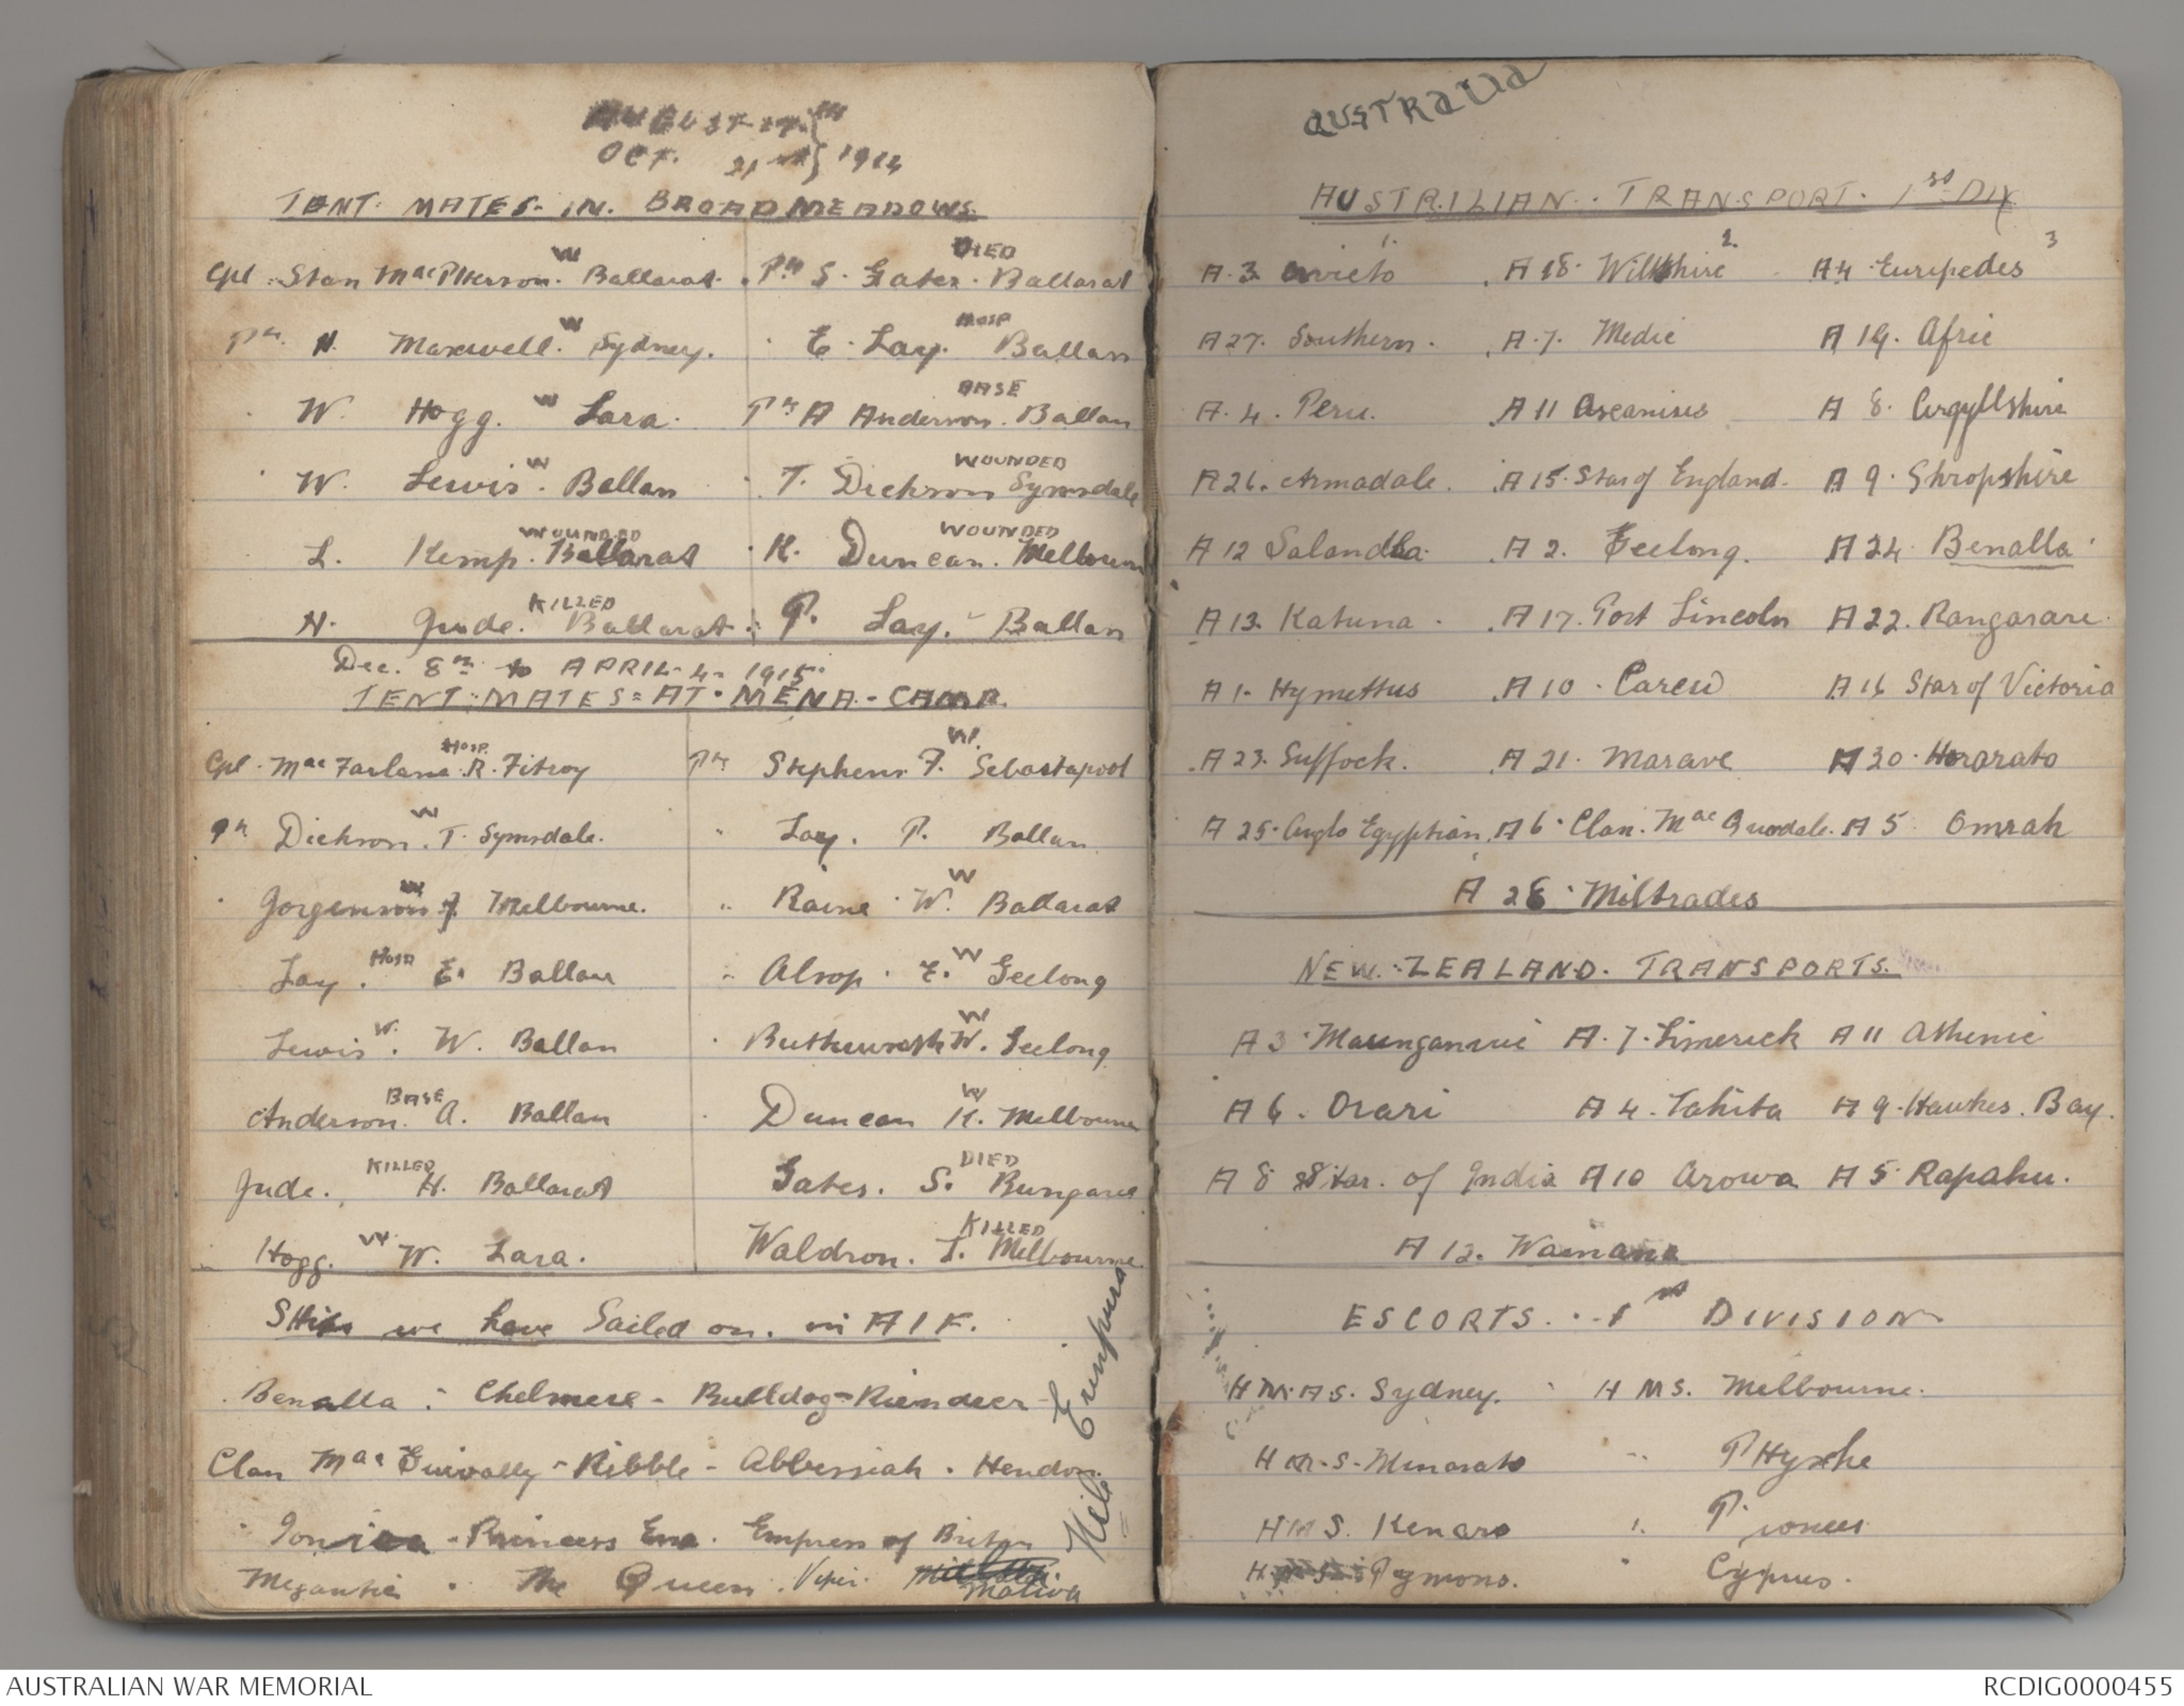 AUGUST 17th }
OCT. 21st } 1914
TENT MATES IN. BROADMEADOWS.
Cpl. Stan MacPherson. W Ballarat. Pte S. Gates. DIED Ballarat
Pte. H. Maxwell. W Sydney. " E. Lay. HOSP Ballan
" W. Hogg. W Lara. Pte A Anderson. BASE Ballan
" W. Lewis. W Ballan " T. Dickson WOUNDED Symsdale
L. Kemp. WOUNDED Ballarat " K. Duncan. WOUNDED Melbourne
H. Jude. KILLED Ballarat. " P. Lay. - Ballan
Dec. 8th to APRIL 4. 1915.
TENT MATES = AT. MENA - CAMP.
Cpl. MacFarlane HOSP. R. Fitroy Pte Stephens F. W. Sebastapool
Pte Dickson. W T. Symsdale. " Lay. P. Ballan
" Gorgenson W J. Melbourne. " Raine W. W Ballarat
Lay. HOSP E. Ballan " Alsop. F. W Geelong
Lewis. W. W. Ballan " Butterworth W. W Geelong
Anderson. BASE A. Ballan " Duncan W K. Melbourne
Jude. KILLED H. Ballarat Gates. S. DIED Bungaree
Hogg. W W. Lara. Waldron. T. KILLED Melbourne.
Ships we have Sailed on. in AIF.
Benalla : Chelmere - Bulldog - Riendeer
Clan Mac Guivally - Ribble - Abbersiah. Hendon.
Princess Ena. Empress of Briton
Megantic. The Queen. Viper.
Malwa
Nile
AUSTRALIA
AUSTRILIAN. TRANSPORT. 1st DIV
1. 2. 3
A. 3. Orvieto A 18. Wiltshire A4 Euripedes
A 27. Southern. A. 7. Medic A 19. Afric
A. 4. Peru. A 11 Ascanius A 8. Argyllshire
A 26. Armadale. A 15. Star of England. A 9. Shropshire
A 12 Salandha. A 2. Geelong. A 24 Benalla
A 13. Katuna. A 17. Port Lincoln A 22. Rangarare.
A 1. Hymettus A 10. Carew A 16 Star of Victoria
A 23. Suffock. A 21. Marave A 20. Hororato
A 25. Anglo Egyptian A 6. Clan. Mac Quodale. A 5 Omrah
A 28. Miltrades
NEW. ZEALAND. TRANSPORTS.
A 3. Maunganuie A. 7. Limerick A 11 Athenic
A 6. Orari A 4. Tahita A 9. Hawkes. Bay.
A 8 Star. of India A 10 Arowa A 5 Rapahu.
A 12. Waimana
ESCORTS. 1st DIVISION
H M A S. Sydney. H MS. Melbourne.
H M. S. Minarato " PHyrhe
H M S. Kenaro " Pioneer
H M S. Pymons. " Cyprus.
AUSTRALIAN WAR MEMORIAL
RCDIG0000455